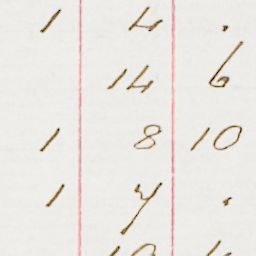 1 4 .
14 6
1 8 10
1 7 .